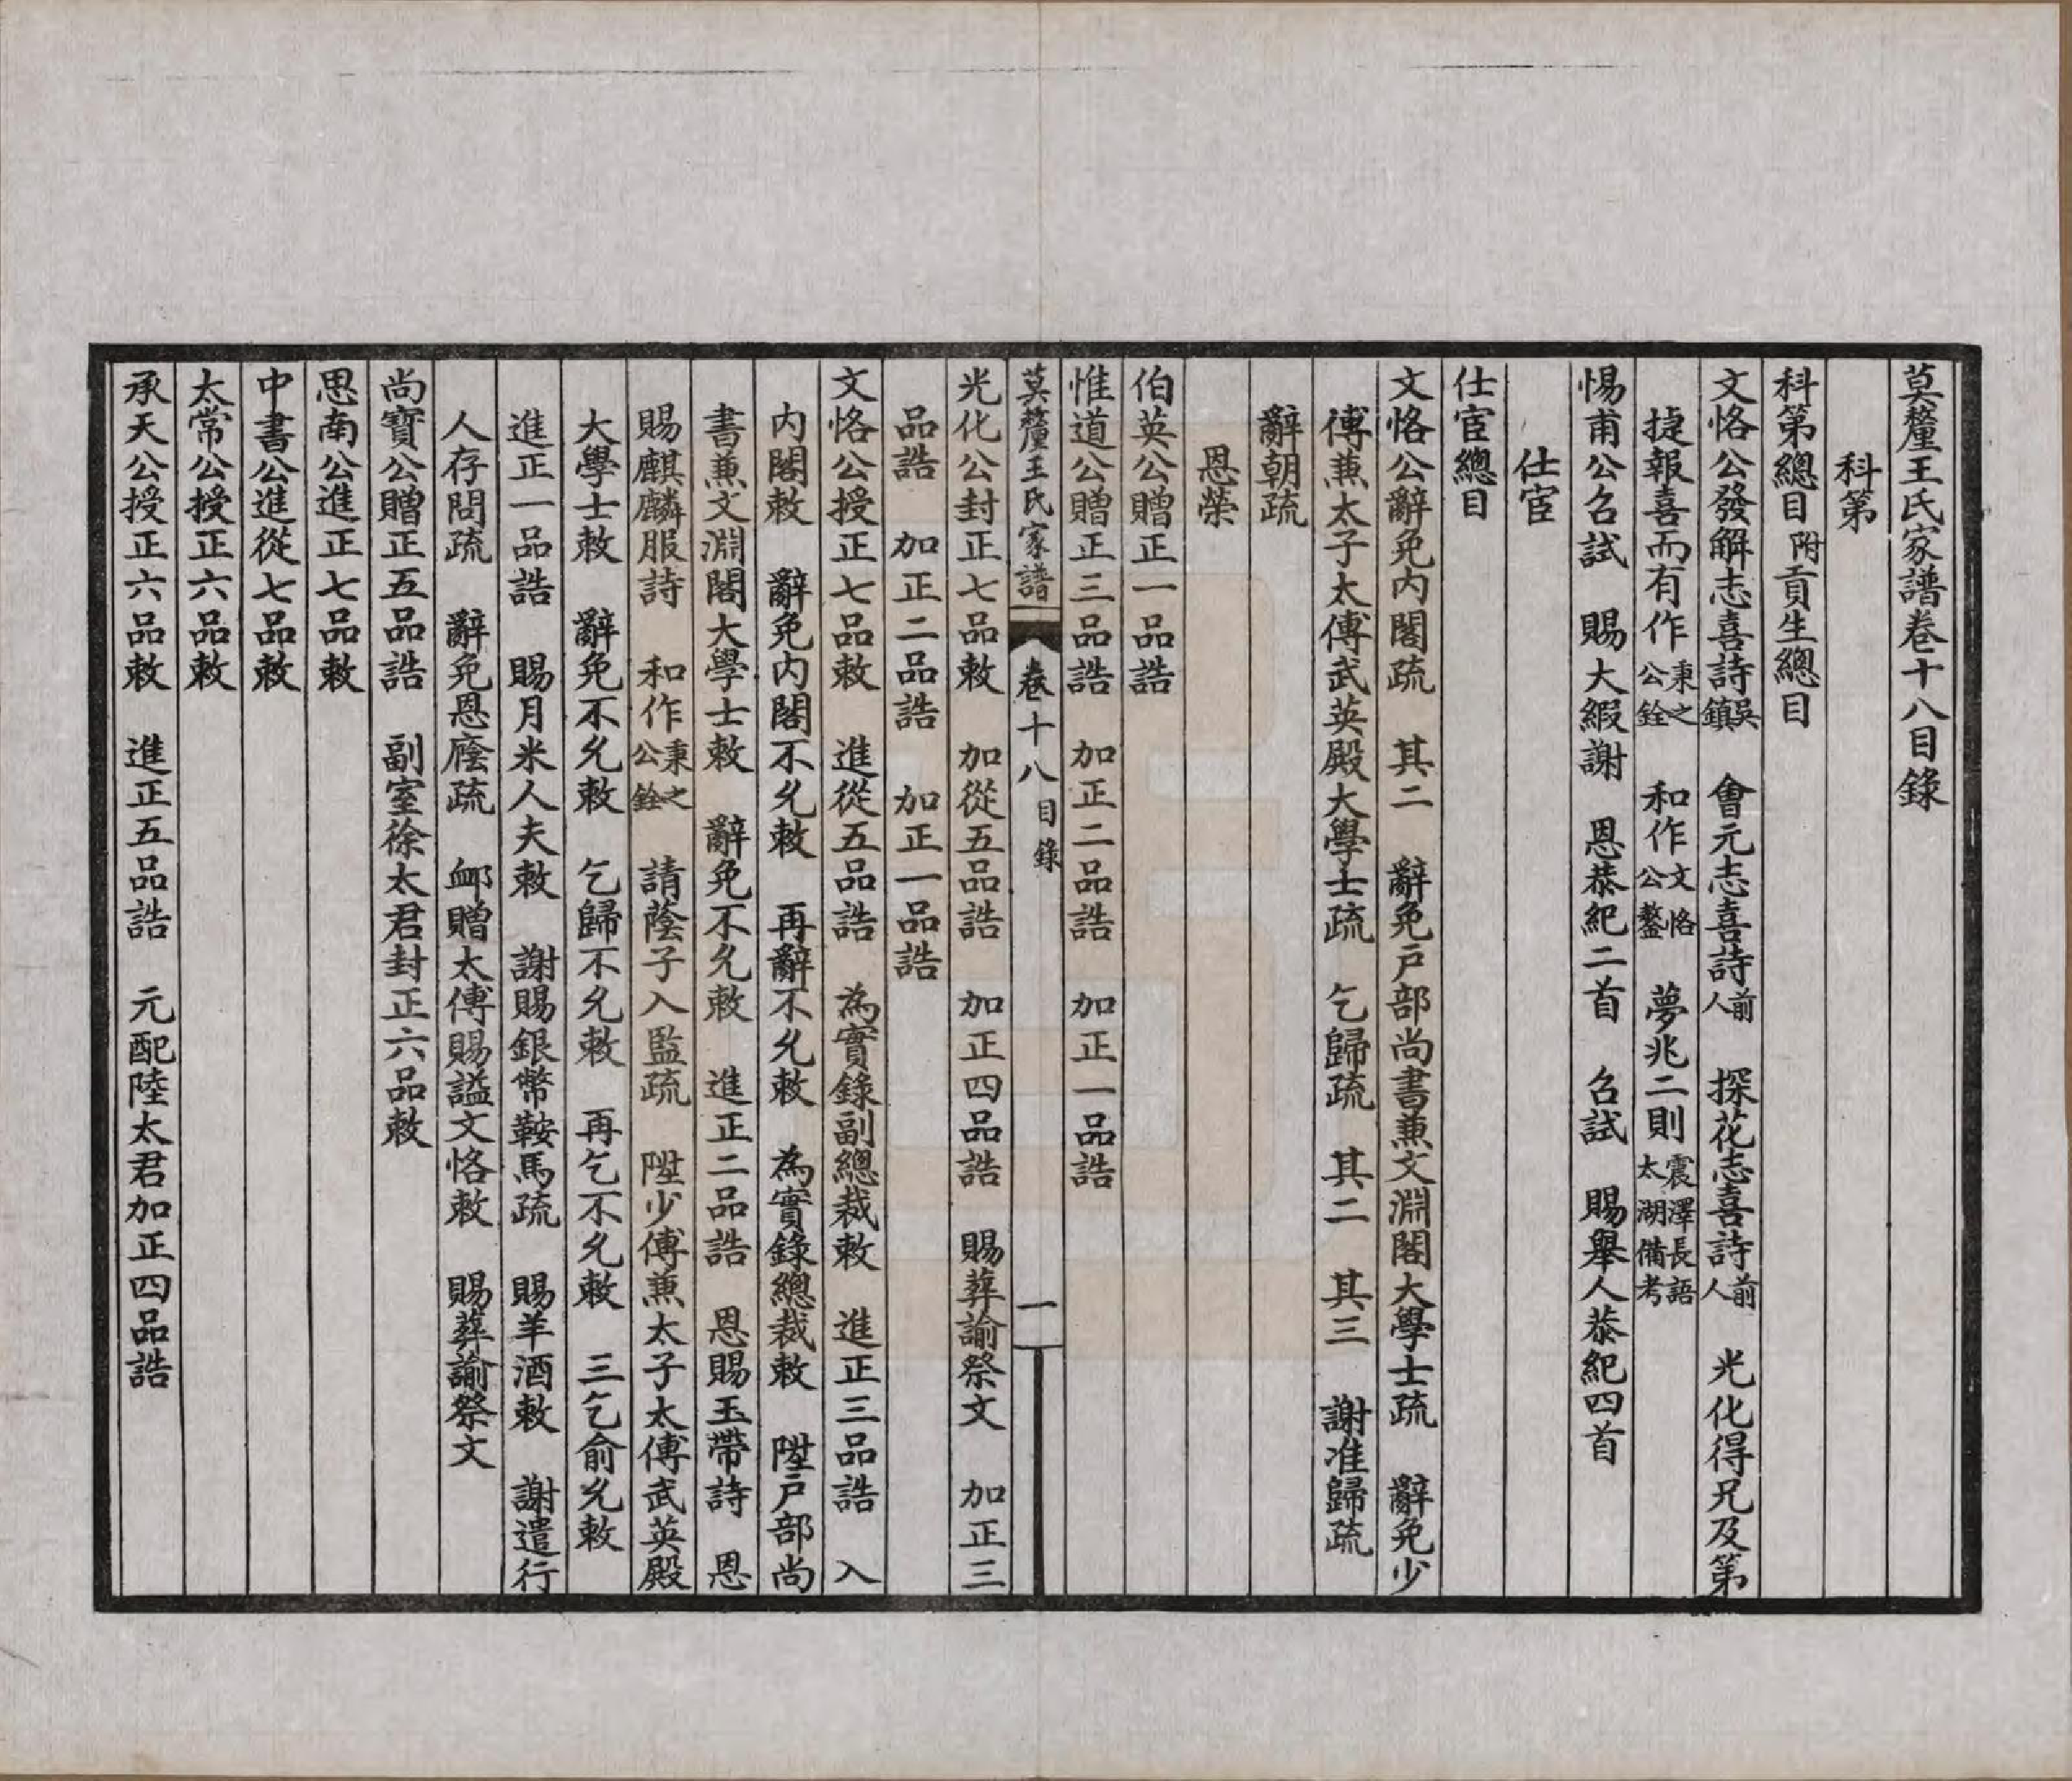 莫釐王氏家譜卷十八目錄
科第
科第總目 附貢生總目
文恪公發解志喜詩 吳鎮 會元志喜詩 前人 探花志喜詩 前人 光化得兄及第
捷報喜而有作 秉之公銓 和作 文恪公鏊 夢兆二則 震澤長語 太湖備考
惕甫公召試 賜大緞謝 恩恭紀二首 召試 賜舉人恭紀四首
仕宦
仕宦總目
文恪公辭免内閣疏 其二 辭免戸部尚書兼文淵閣大學士疏 辭免少
傅兼太子太傅武英殿大學士疏 乞歸疏 其二 其三 謝准歸疏
辭朝疏
恩榮
伯英公贈正一品誥
惟道公贈正三品誥 加正二品誥 加正一品誥
莫釐王氏家譜 卷十八 目錄 一
光化公封正七品敕 加從五品誥 加正四品誥 賜葬諭祭文 加正三
品誥 加正二品誥 加正一品誥
文恪公授正七品敕 進從五品誥 為實錄副總裁敕 進正三品誥 入
内閣敕 辭免内閣不允敕 再辭不允敕 為實錄總裁敕 陞戸部尚
書兼文淵閣大學士敕 辭免不允敕 進正二品誥 恩賜玉帶詩 恩
賜麒麟服詩 和作 秉之公銓 請蔭子入監疏 陞少傅兼太子太傅武英殿
大學士敕 辭免不允敕 乞歸不允敕 再乞不允敕 三乞俞允敕
進正一品誥 賜月米人夫敕 謝賜銀幣鞍馬疏 賜羊酒敕 謝遣行
人存問疏 辭免恩廕疏 卹贈太傅賜謚文恪敕 賜葬諭祭文
尚寶公贈正五品誥 副室徐太君封正六品敕
思南公進正七品敕
中書公進從七品敕
太常公授正六品敕
承天公授正六品敕 進正五品誥 元配陸太君加正四品誥